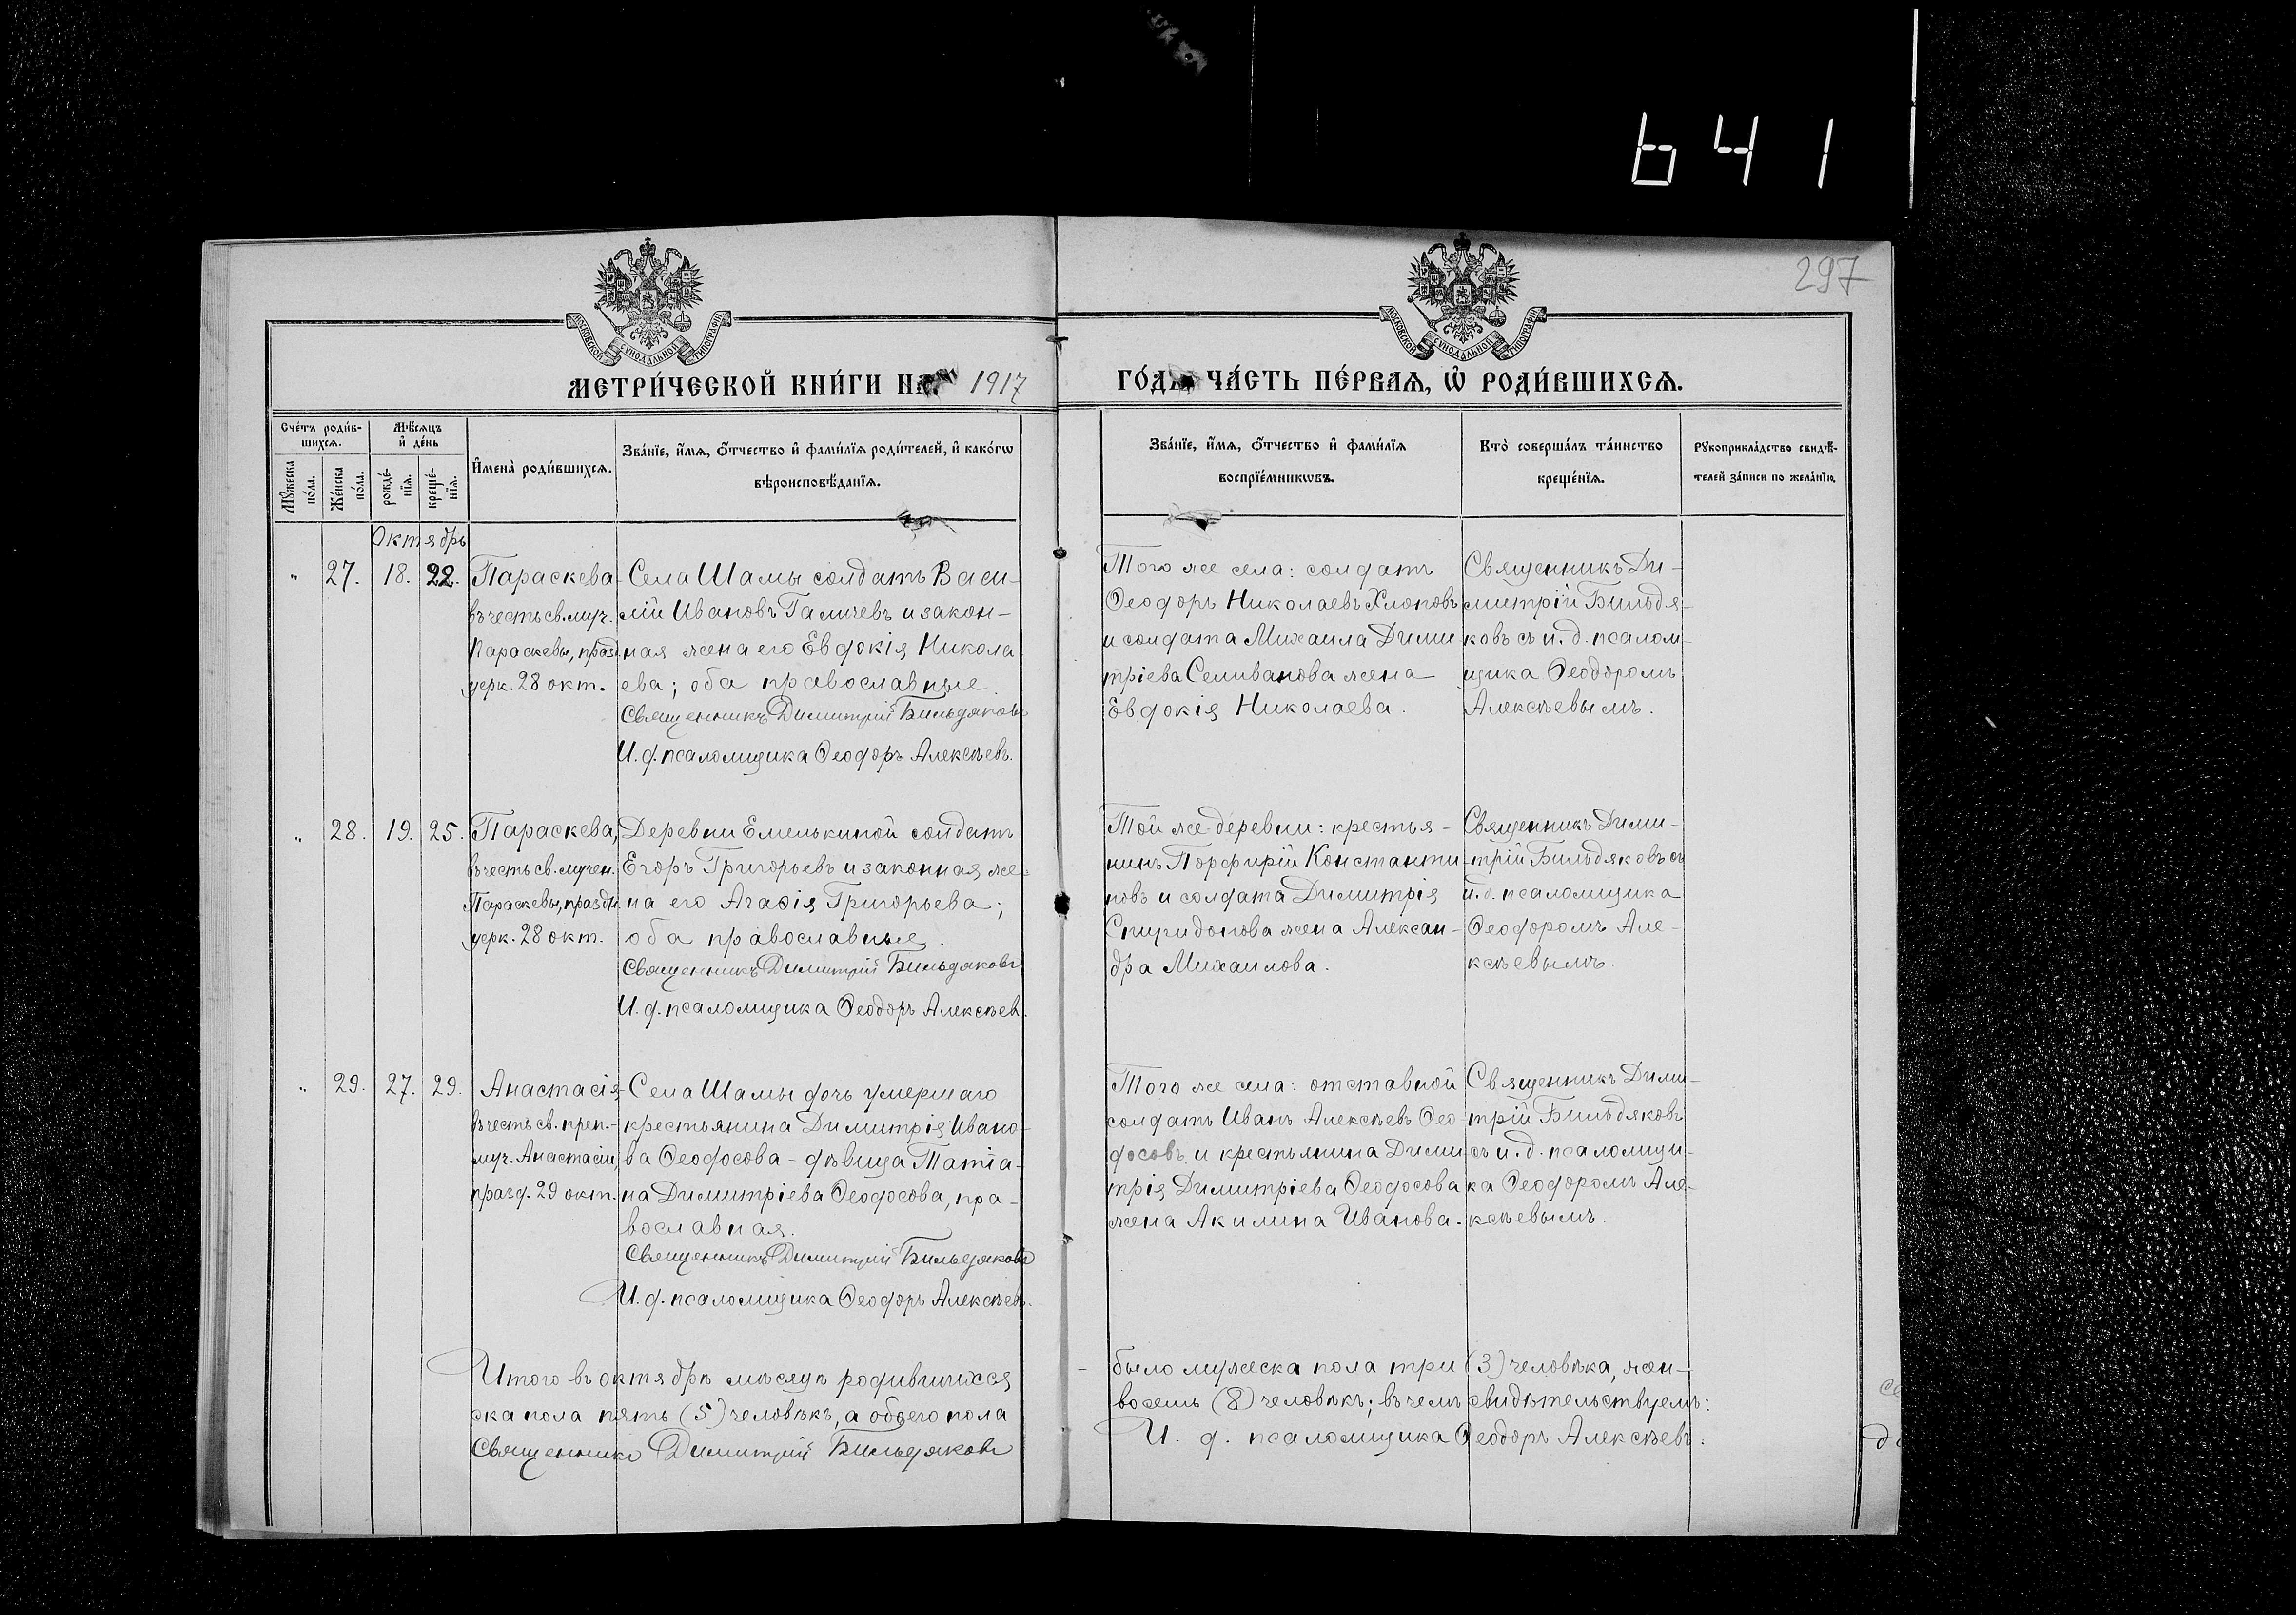 641
297
МОСКОВСКОЙ СѴНОДАЛЬНОЙ ТИПОГРАФІИ
МОСКОВСКОЙ СѴНОДАЛЬНОЙ ТИПОГРАФІИ
МЕТРИ́ЧЕСКОЙ КНИ́ГИ НА 1917
ГО́ДЪ, ЧА́СТЬ ПЕ́РВАЯ, Ѡ҆ РОДИ́ВШИХСЯ.
Сче́тъ роди́в-
шихся.
Мꙋ́жеска
по́ла.
Же́нска
по́ла.
Мѣ́сяцъ
и҆ де́нь
рожде́-
нїя.
креще́-
нїя.
И҆мена̀ роди́вшихся.
Зва́нїе, и҆́мя, ѻ҆́тчество и҆ фами́лїя роди́телей, и҆ како́гѡ
вѣроисповѣ́данїя.
Зва́нїе, и҆́мя, ѻ҆́тчество и҆ фами́лїя
воспрїе́мникѡвъ.
Кто̀ соверша́лъ та́инство
креще́нїя.
Рꙋкоприкла́дство свидѣ́-
телей за́писи по жела́нїю.
Октябрь
" 27. 18. 22.
Параскева
въ честь св. муч.
Параскевы, празд.
церк. 28 окт.
Села Шамы солдатъ Васи-
лій Ивановъ Галичевъ и закон-
ная жена его Евдокія Никола
ева; оба православные.
Священникъ Димитрій Бильдяковъ
И. д. псаломщика Ѳеодоръ Алексѣевъ.
Того же села: солдатъ
Ѳеодоръ Николаевъ Хлоповъ
и солдата Михаила Дими
тріева Селиванова жена
Евдокія Николаева.
Священникъ Ди-
митрій Бильдя-
ковъ съ и. д. псалом-
щика Ѳеодоромъ
Алексѣевымъ.
" 28. 19. 25.
Параскева,
въ честь св. мучен.
Параскевы, праздн.
церк. 28 окт.
Деревни Емелькиной солдатъ
Егоръ Григорьевъ и законная же-
на его Агаѳія Григорьева;
оба православные.
Священникъ Димитрій Бильдяковъ
И. д. псаломщика Ѳеодоръ Алексѣев.
Той же деревни: крестья-
нинъ Порфирій Константи
новъ и солдата Димитрія
Спиридонова жена Алексан-
дра Михаилова.
Священникъ Дими-
трій Бильдяковъ съ
и. д. псаломщика
Ѳеодоромъ Але-
ксѣевымъ.
" 29. 27. 29.
Анастасія,
въ честь св. преп.-
муч. Анастасіи,
празд. 29 окт.
Села Шамы дочь умершаго
крестьянина Димитрія Ивано-
ва Ѳеодосова - дѣвица Татіа-
на Димитріева Ѳеодосова, пра-
вославная.
Священникъ Димитрій Бильдяковъ
И. д. псаломщика Ѳеодоръ Алексѣевъ.
Того же села: отставной
солдатъ Иванъ Алексѣевъ Ѳео-
досовъ и крестьянина Дими
трія Димитріева Ѳеодосова
жена Акилина Иванова.
Священникъ Дими-
трій Бильдяковъ
съ и. д. псаломщи-
ка Ѳеодоромъ Але-
ксѣевымъ.
Итого въ октябрѣ мѣсяцѣ родившихся
было мужеска пола три (3) человѣка, жен-
ска пола пять (5) человѣкъ, а обоего пола
восемь (8) человѣкъ; въ чемъ свидѣтельствуемъ:
Священникъ Димитрій Бильдяковъ
И. д. псаломщика Ѳеодоръ Алексѣевъ.